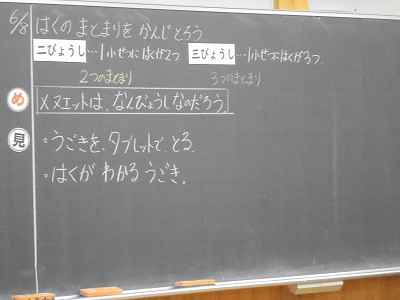 6/8 はくの まとまりを かんじとろう
二びょうし…1小せつにはくが2つ 三びょうし…1小せつにはくが3つ.
2つのまとまり 3つのまとまり
め メヌエットは、なんびょうしなのだろう。
見 ・うごきを、タブレットで とる。
・はくが わかる うごき。